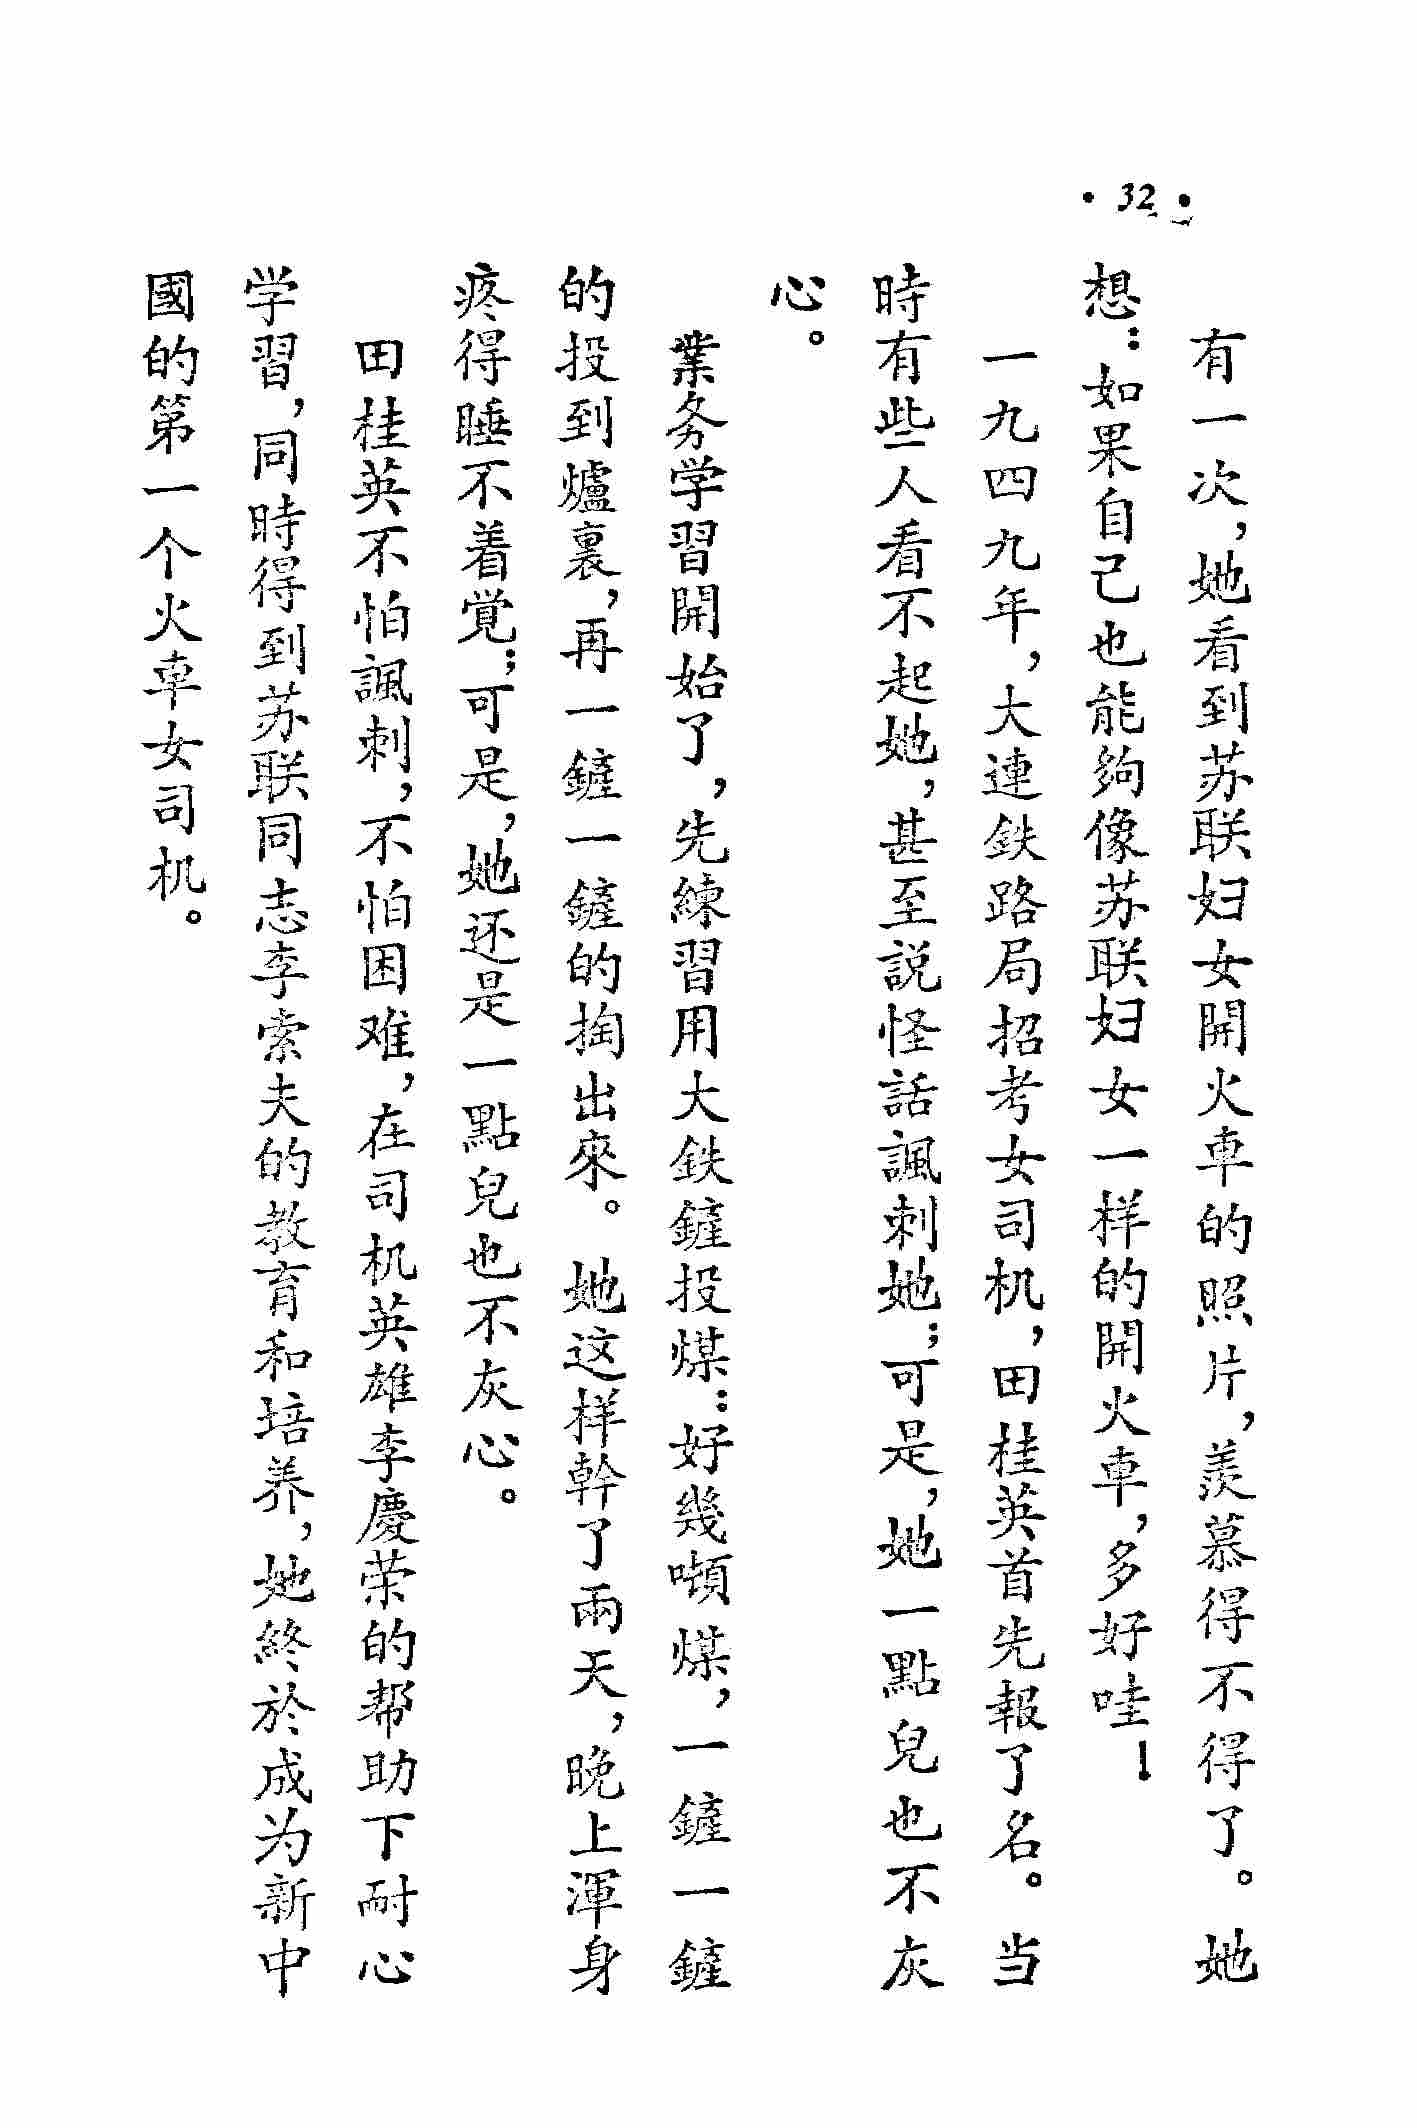 ·32·
有一次，她看到苏联妇女開火車的照片，羨慕得不得了。她
想：如果自己也能夠像苏联妇女一样的開火車，多好哇！
一九四九年，大連鉄路局招考女司机，田桂英首先報了名。当
時有些人看不起她，甚至説怪話諷刺她；可是，她一點兒也不灰
心。
業务学習開始了，先練習用大鉄鏟投煤：好幾噸煤，一鏟一鏟
的投到爐裏，再一鏟一鏟的掏出來。她这样幹了兩天，晚上渾身
疼得睡不着覚；可是，她还是一點兒也不灰心。
田桂英不怕諷刺，不怕困难，在司机英雄李慶荣的帮助下耐心
学習，同時得到苏联同志李索夫的教育和培养，她終於成为新中
國的第一个火車女司机。